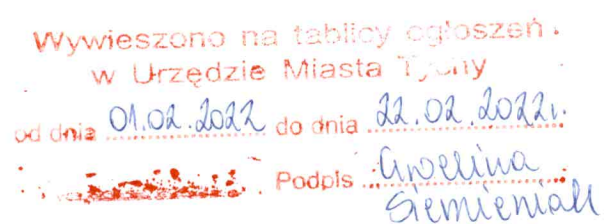 Wywieszono na tablicy ogłoszeń
w Urzędzie Miasta Tychy
od dnia 01.02.2022 do dnia 22.02.2022r.
Podpis Ewelina
Siemieniak